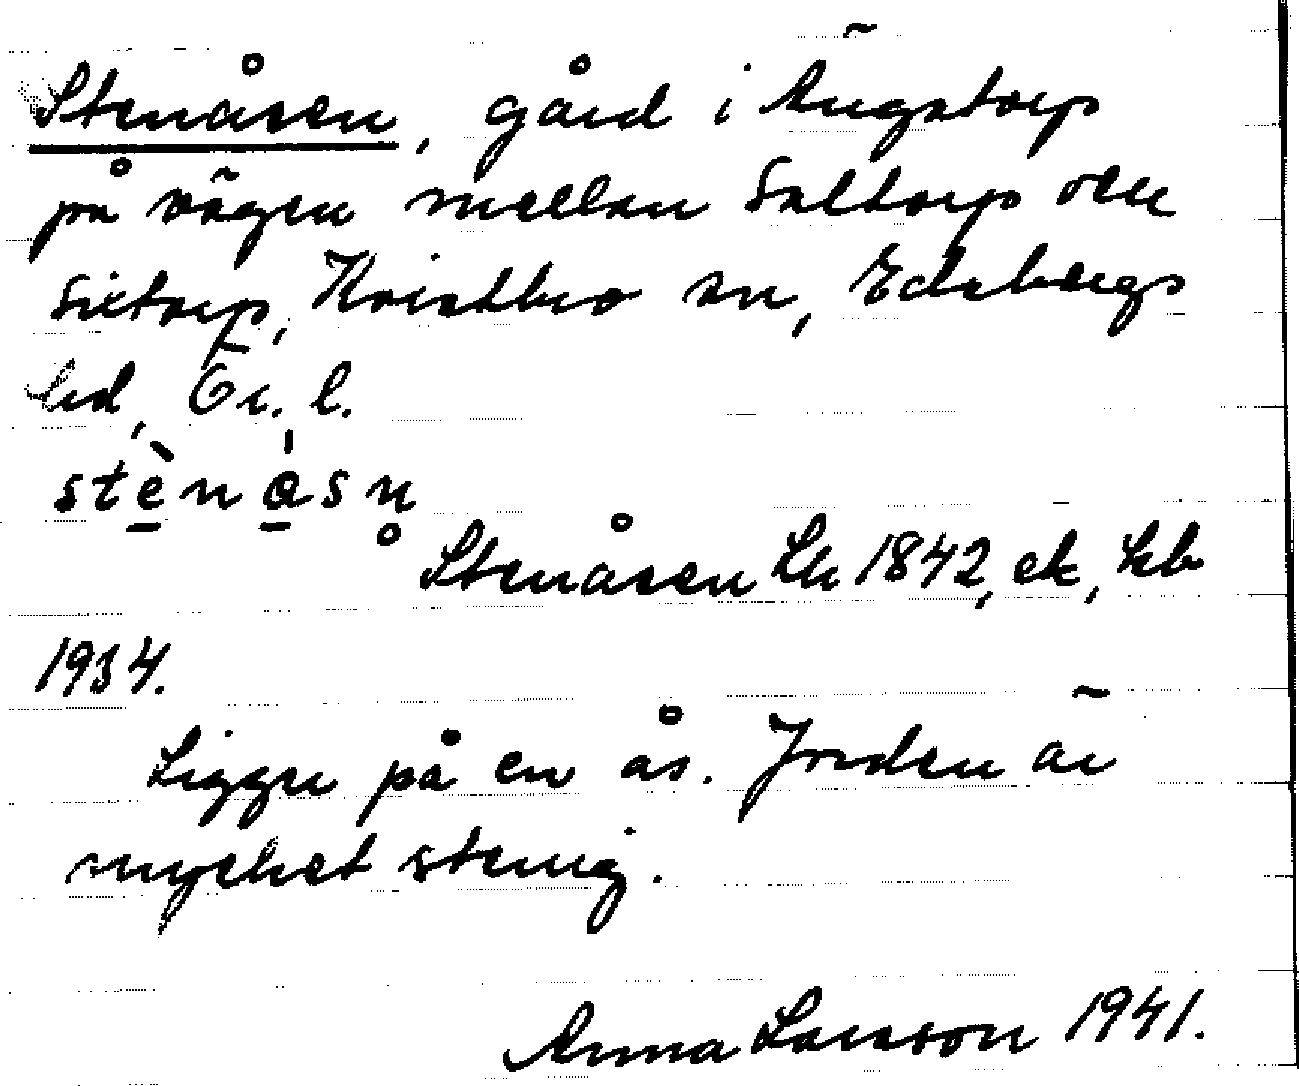 Stenåsen, gård i Ängstorp
på vägen mellan Saltorp och
Siltorp, Kvistbro sn, Edsbergs
hd, Ör. l.
stèn åsn
Stenåsen Lk 1842, ek, Hkb
1934.
Ligger på en ås. Jorden är
mycket stenig.
Anna Larsson 1941.